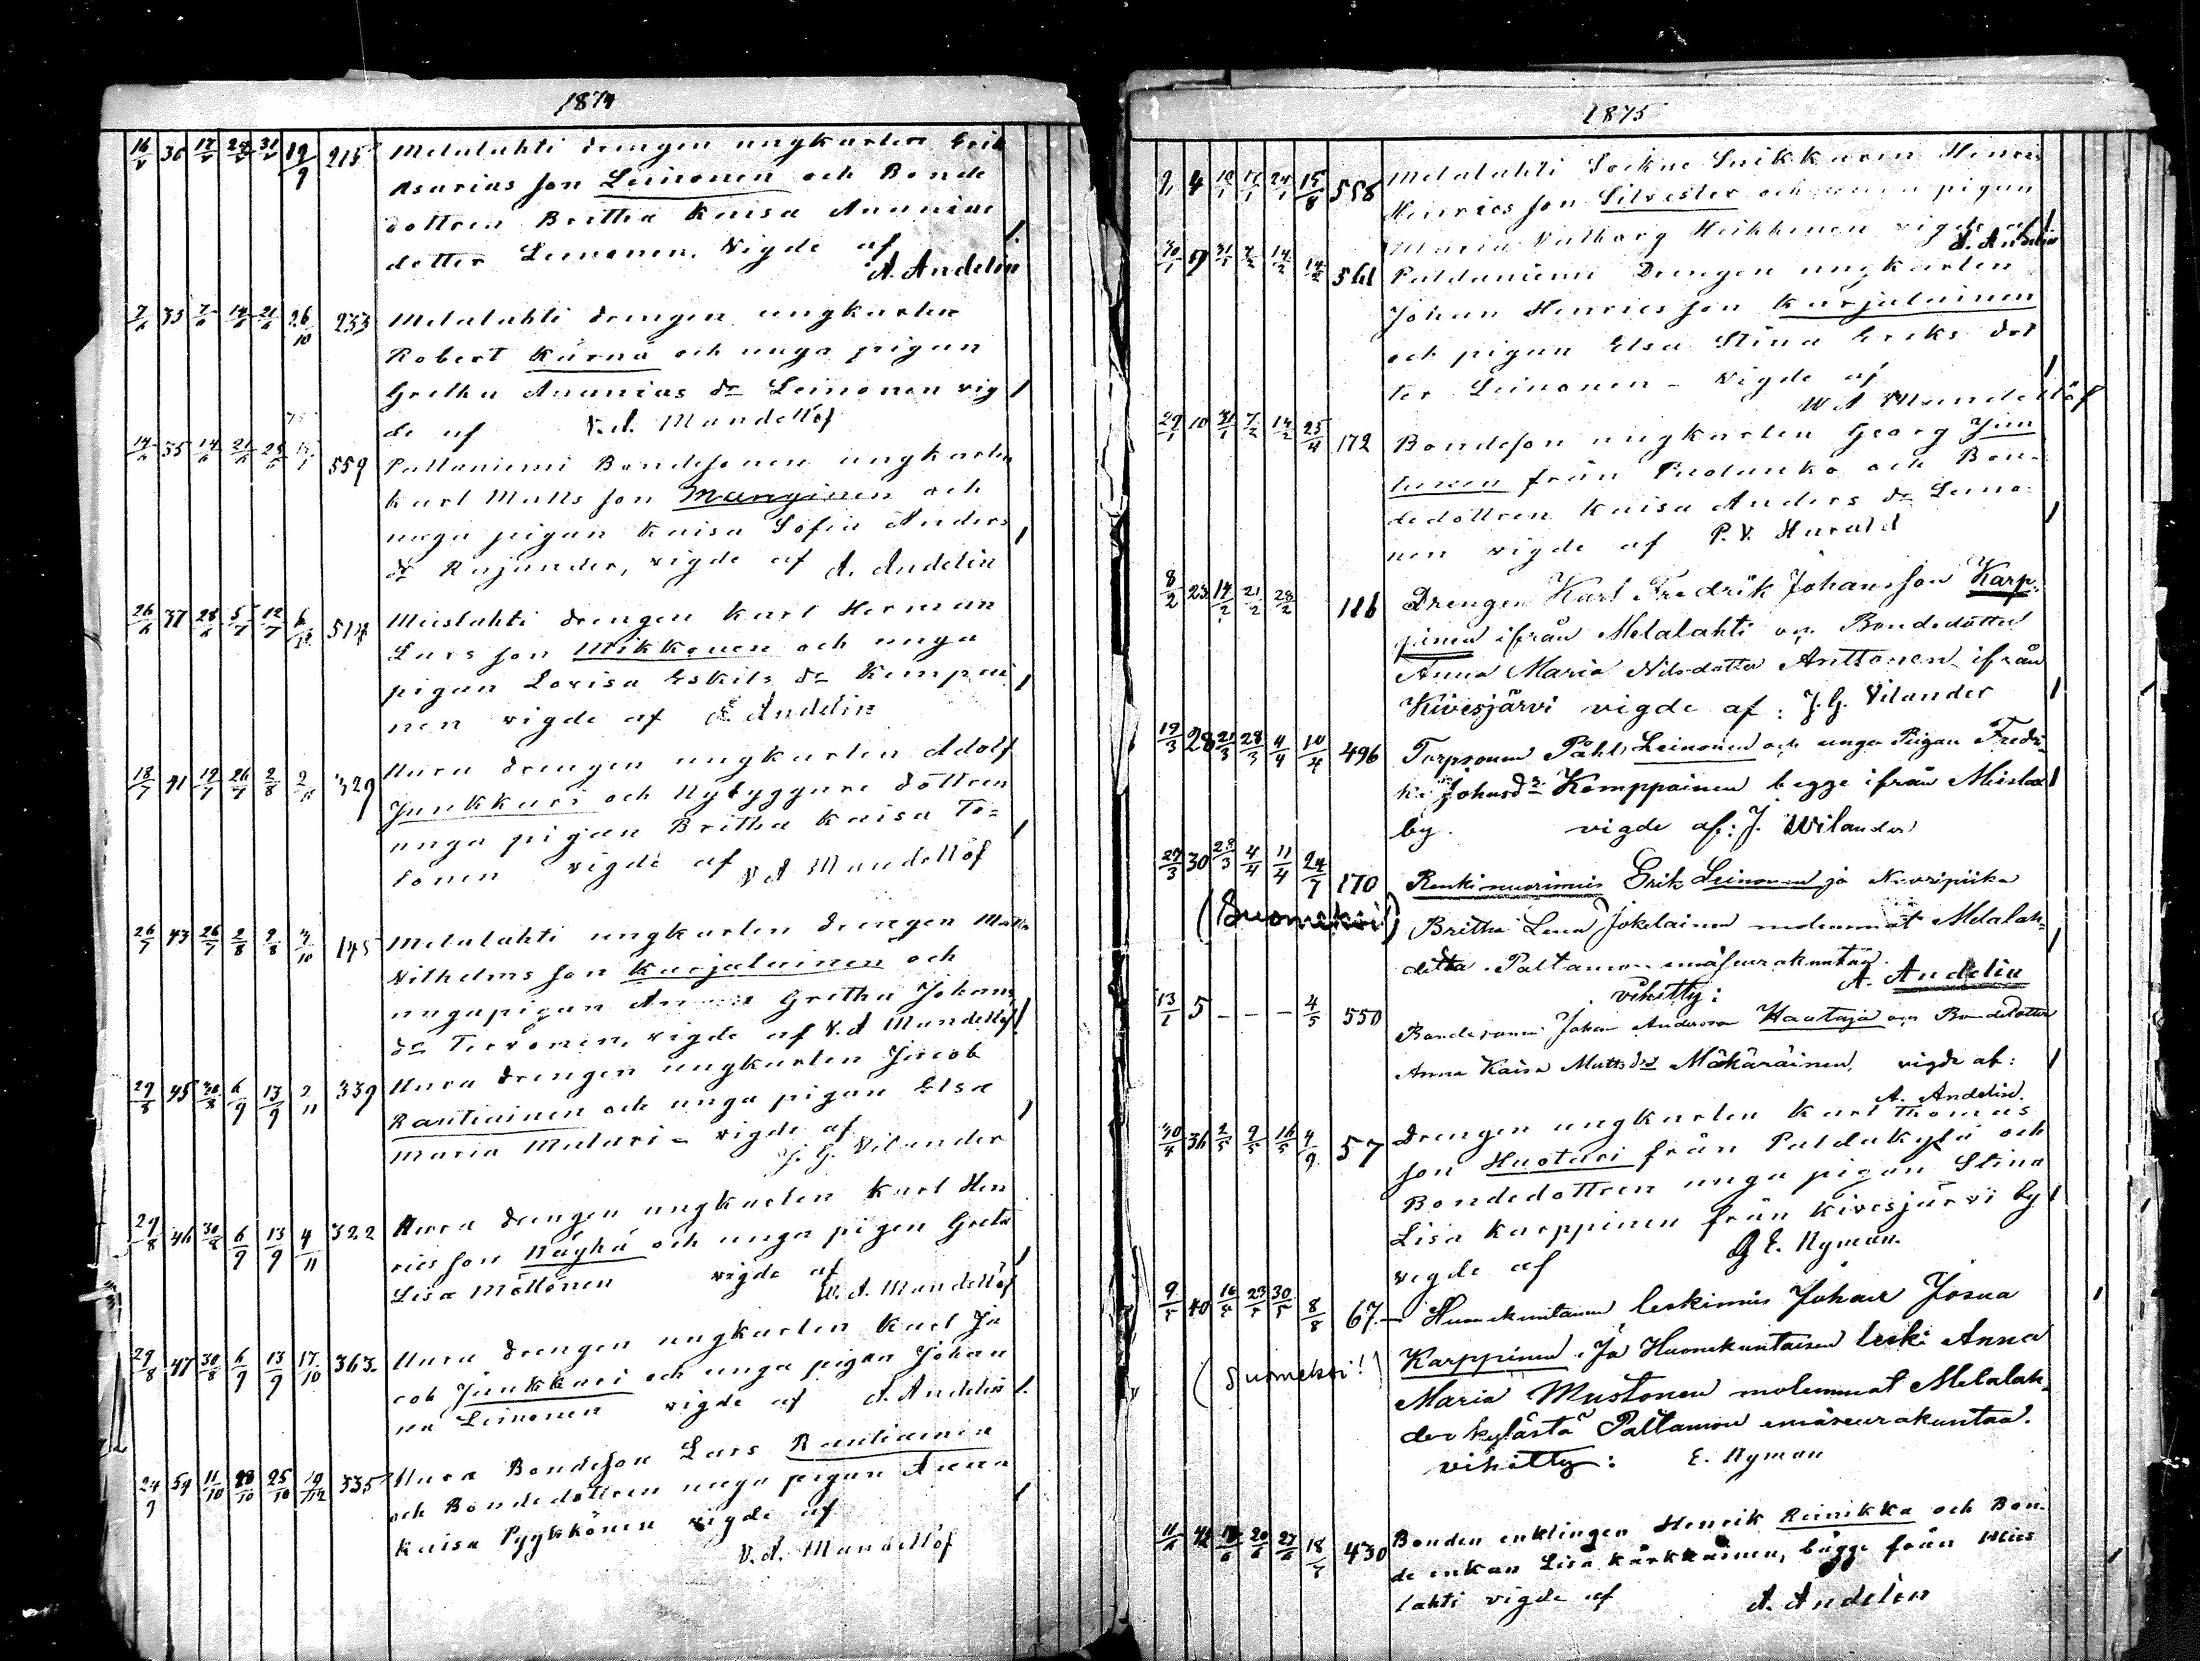 1874
16/5 36 17/5 24/5 31/5 19/9 215 Melalahti drengen ungkarlen Erik
Asarias son Leinonen och Bonde
dottren Britha Kaisa Ananias
dotter Leinonen. Vigde af
A. Andelin
7/6 33 7/6 14/6 21/6 26/10 233 Melalahti drengen ungkarlen
Robert Kärnä och unga pigan
Gretha Ananias dr Leinonen vig
de af V. A. Mandellöf
14/6 35 14/6 21/6 559 Paltaniemi Bondesonen ungkarlen
Karl Matts son Manginen och
unga pigan Kaisa Sofia Anders
dr Rajander, vigde af A. Andelin
26/6 37 28/6 5/7 12/7 514 Mieslahti drengen Karl Herman
Lars son Mikkonen och unga
pigan Lovisa Eskils dr Kempai
nen vigde af A. Andelin
18/7 41 19/7 26/7 2/8 329 Uura drengen ungkarlen Adolf
Junkkari och Nybyggare dottren
unga pigan Britha Kaisa To=
lonen vigde af V A Mandellöf
26/7 43 26/7 2/8 9/8 4/10 145 Melalahti ungkarlen drengen Matts
Vilhelms son Karjalainen och
ungapigan Anna Gretha Johans
dr Tervonen, vigde af V. A Mandellöf
29/8 45 30/8 6/9 13/9 2/11 339 Uura drengen ungkarlen Jacob
Rautiainen och unga pigan Elsa
Maria Matari - vigde af
J. G. Vilander
29/8 46 30/8 6/9 13/9 4/11 322 Uura drengen ungkarlen Karl Hen
rics son Näyhä och unga pigan Greta
Lisa Möttönen vigde af
V. A. Mandellöf
29/8 47 30/8 6/9 13/9 17/10 363. Uura drengen ungkarlen Karl Ja
cob Junkkari och unga pigan Johan
na Leinonen vigde af A. Andelin
24/9 54 11/10 18/10 25/10 19/12 335 Uura Bondeson Lars Rautiainen
och Bondedottren unga pigan Anna
Kaisa Pyykkönen vigde af
V. A. Mandellöf
1875
4 17/1 24/1 558 Melalahti Sockne Snikkaren Henric
Henrics son Silvester och unga pigan
Maria Valborg Heikkinen vigde af
A. Andelin
30/1 31/1 7/2 14/2 14/2 561 Paldaniemi Drengen ungkarlen
Johan Henrics son Karjalainen
och pigan Elsa Stina Eriks dot
ter Leinonen - Vigde af
V A Mandellöf
29/1 10 31/1 7/2 14/2 25/4 172 Bondeson ungkarlen Georg Jun
tunen från Puolanko och Bon-
dedottren Kaisa Anders dr Leino-
nen vigde af P. V. Harald
8/2 23 14/2 21/2 28/2 116 Drengen Karl Fredrik Johansson Karp-
pinen ifrån Melalahti och Bondedotter
Anna Maria Nilsdotter Anttonen ifrån
Kivesjärvi vigde af: J. G. Vilander
19/3 28 21/3 28/3 4/4 10/4 496 Torpsonen Påhl Leinonen och unga Pigan Fredri-
ka Johansdr Kemppainen begge ifrån Mieslax
by. vigde af: J. Wilander
27/3 30 28/3 4/4 11/4 24/7 170 Renki nuorimies Erik Leinonen ja Nuoripiika
(Suomeksi) Britha Lena Jokelainen molemmat Melalah-
delta Paltamon emäseurakuntaa.
vihitty: A. Andelin
13/1 5 - - - 4/5 550 Bondesonen Johan Andersson Hautaja och Bondedotter
Anna Kaisa Mattsdr Mäkäräinen, vigde af:
A. Andelin.
30/4 36 2/5 9/5 16/5 4/9 57 Drengen ungkarlen Karl Thomas
son Huotari från Paldakylä och
Bondedottren unga pigan Stina
Lisa Karppinen från Kivesjärvi by
vigde af G E. Nyman.
9/5 40 16/5 23/5 30/5 8/8 67. Huonekuntanen leskimies Johan Josua
(Suomeksi!) Karppinen. Ja Huonekuntaisen leski Anna
Maria Mustonen molemmat Melalah-
den kylästä Paltamon emäseurakuntaa.
vihitty: E. Nyman
11/6 20/6 27/6 430 Bonden enklingen Henrik Reinikka och Bon-
de enkan Lisa Kärkkäinen, bägge från Mies
lahti vigde af A. Andelin